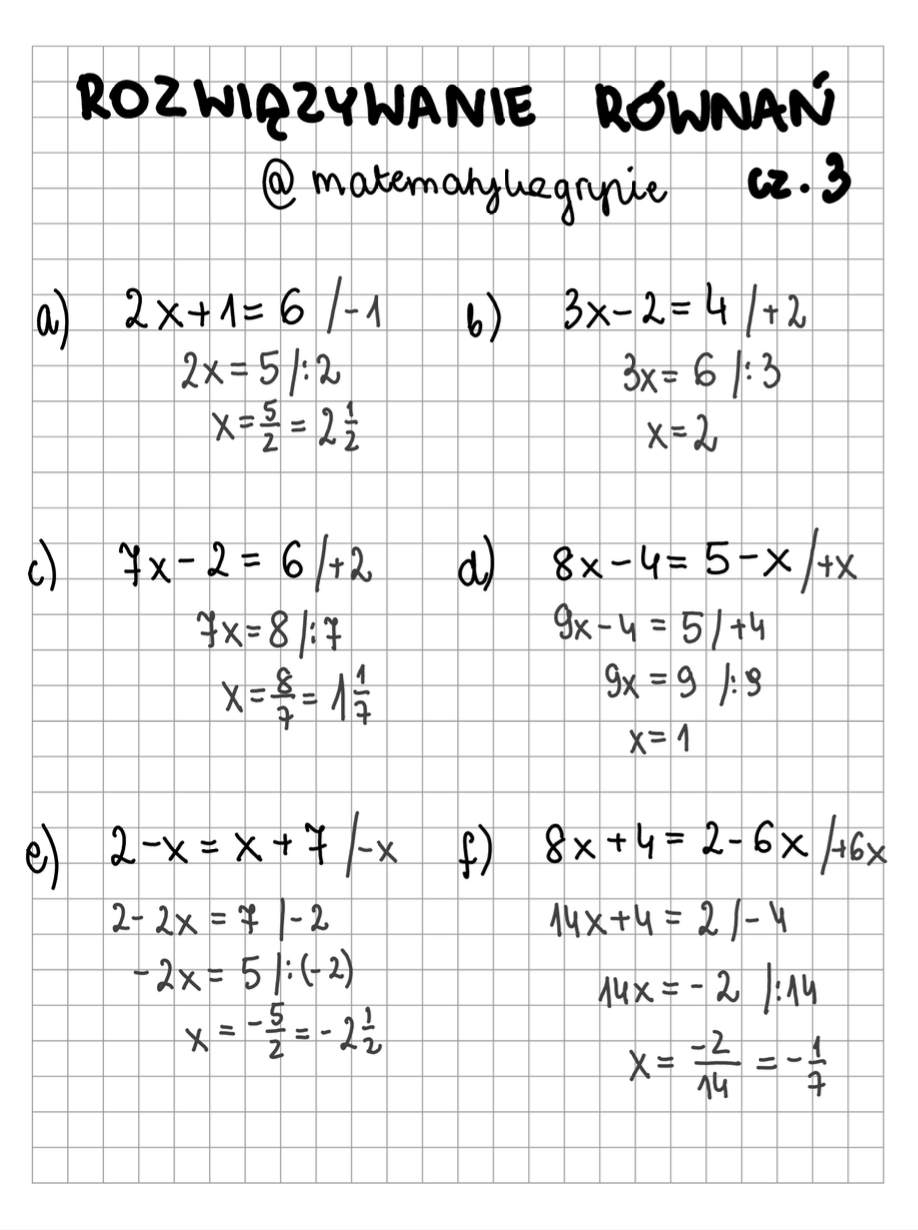 ROZWIĄZYWANIE RÓWNAŃ
@matematykagrypie cz.3
a) 2x+1=6 /-1
2x=5 /:2
x=5/2=2 1/2
b) 3x-2=4 /+2
3x=6 /:3
x=2
c) 7x-2=6 /+2
7x=8 /:7
x=8/7=1 1/7
d) 8x-4=5-x /+x
9x-4=5 /+4
9x=9 /:9
x=1
e) 2-x=x+7 /-x
2-2x=7 /-2
-2x=5 /:(-2)
x=-5/2=-2 1/2
f) 8x+4=2-6x /+6x
14x+4=2 /-4
14x=-2 /:14
x=-2/14=-1/7